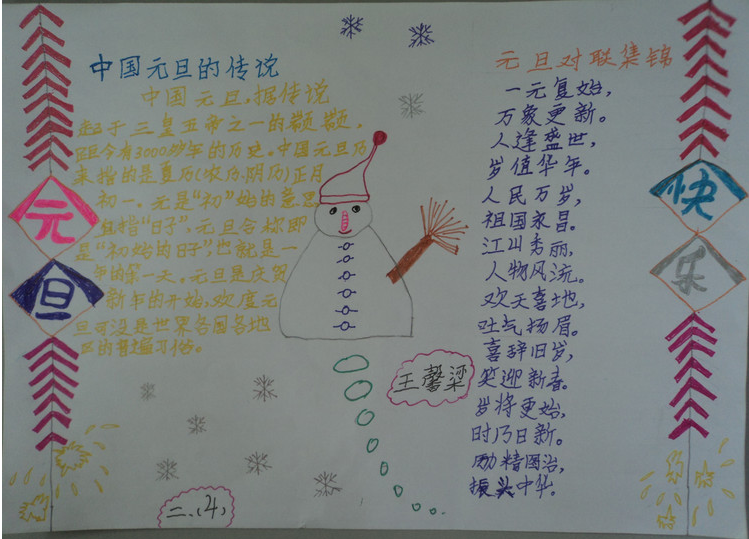 中国元旦的传说
中国元旦,据传说
起于三皇五帝之一的颛顼,
距今有3000多年的历史。中国元旦历
来指的是夏历(农历、阴历)正月
初一。元是“初”始的意思
旦指“日子”,元旦合称即
是“初始的日子”,也就是一
年的第一天。元旦是庆贺
新年的开始,欢度元
旦可说是世界各国各地
区的普遍习俗。
元
旦
元旦对联集锦
一元复始,
万象更新。
人逢盛世,
岁值华年。
人民万岁,
祖国永昌。
江山秀丽,
人物风流。
欢天喜地,
吐气扬眉。
喜辞旧岁,
笑迎新春。
岁将更始,
时乃日新。
励精图治,
振头中华。
快
乐
王馨梁
二、(4)